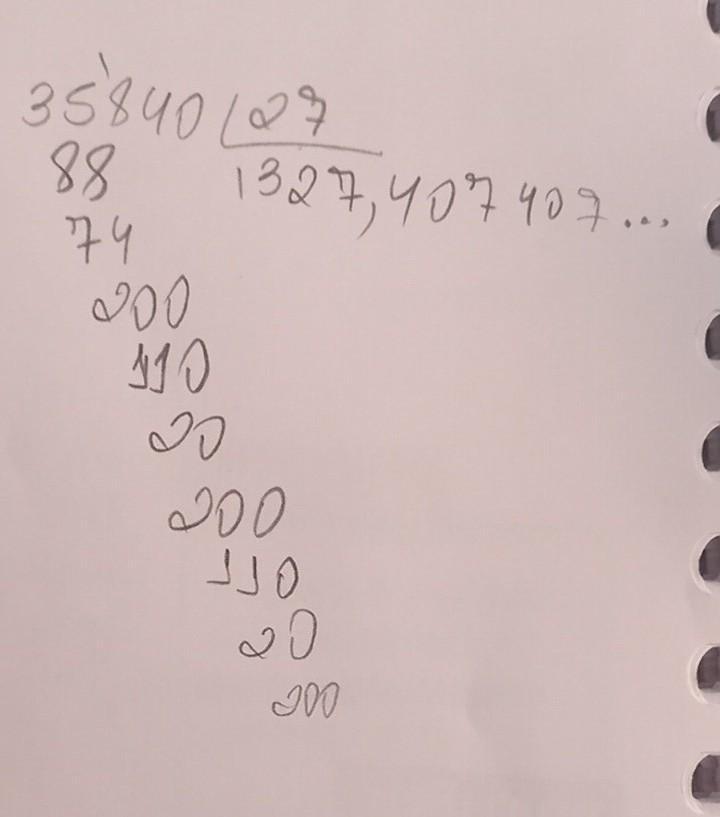 35'840 27
88 1327,407407...
74
200
110
20
200
110
20
200